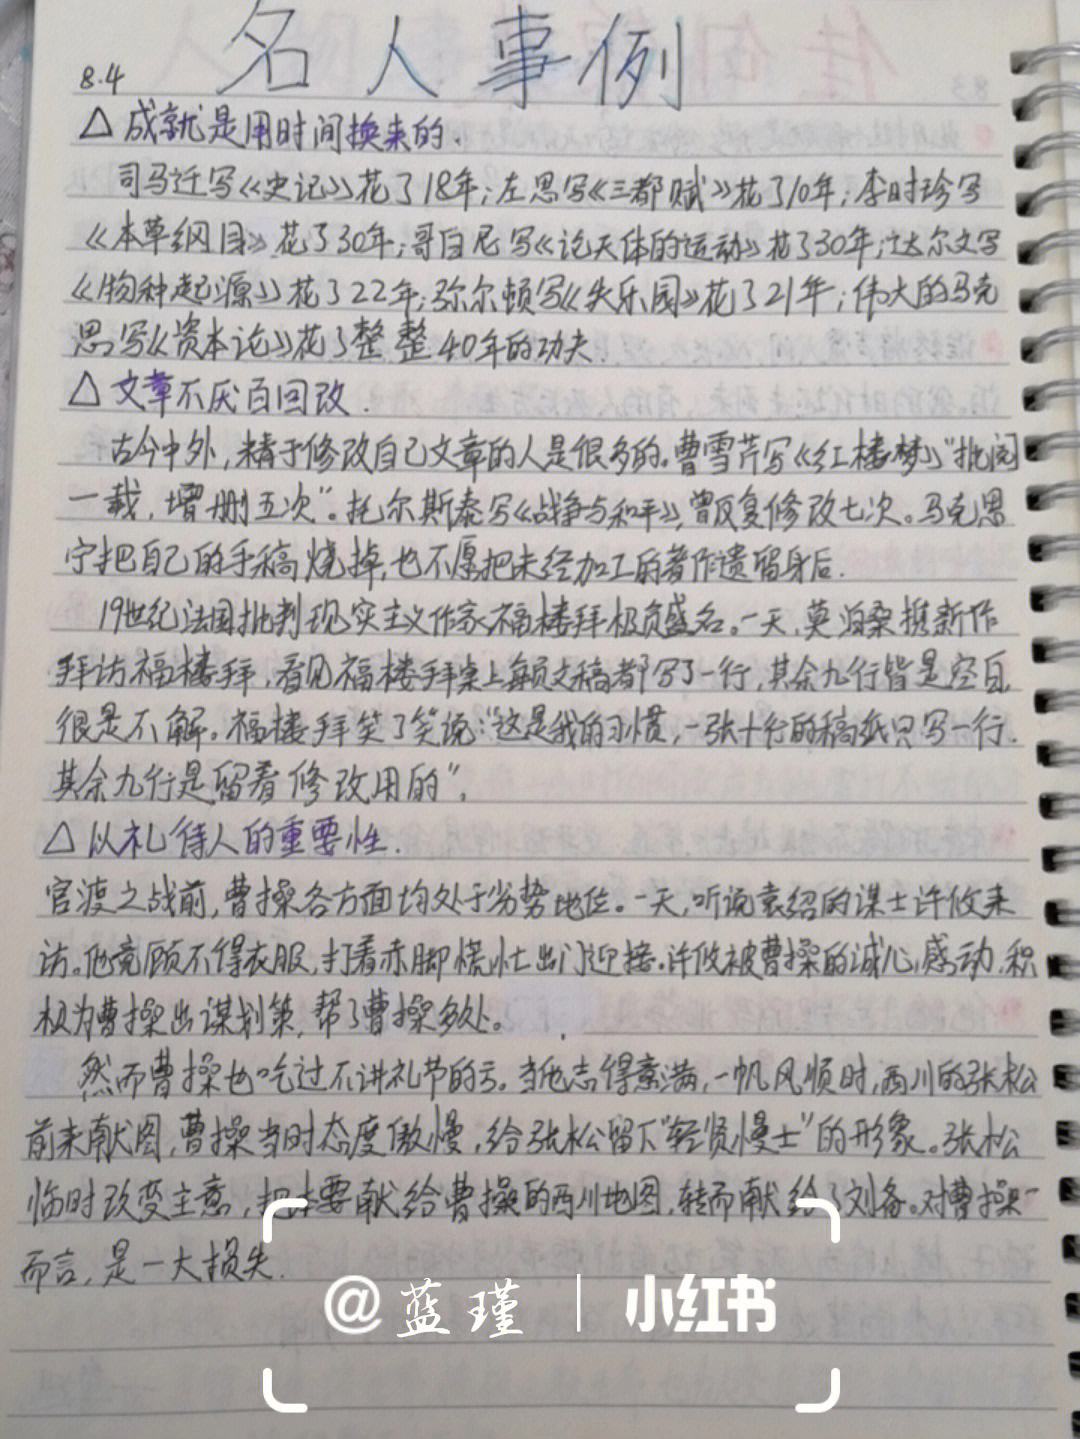 名人事例
8.4
△ 成就是用时间换来的.
司马迁写《史记》花了18年;左思写《三都赋》花了10年;李时珍写
《本草纲目》花了30年;哥白尼写《论天体的运动》花了30年;达尔文写
《物种起源》花了22年;弥尔顿写《失乐园》花了21年;伟大的马克
思写《资本论》花了整整40年的功夫.
△ 文章不厌百回改.
古今中外,精于修改自己文章的人是很多的。曹雪芹写《红楼梦》"批阅
一载,增删五次"。托尔斯泰写《战争与和平》,曾反复修改七次。马克思
宁把自己的手稿烧掉,也不愿把未经加工的著作遗留身后.
19世纪法国批判现实主义作家福楼拜极负盛名。一天,莫泊桑携新作
拜访福楼拜,看见福楼拜桌上每页文稿都写了一行,其余九行皆是空白
很是不解。福楼拜笑了笑说:"这是我的习惯,一张十行的稿纸只写一行.
其余九行是留着修改用的".
△ 以礼待人的重要性.
官渡之战前,曹操各方面均处于劣势地位。一天,听说袁绍的谋士许攸来
访。他竟顾不得衣服,打着赤脚慌忙出门迎接。许攸被曹操的诚心感动,积
极为曹操出谋划策,帮了曹操多处。
然而曹操也吃过不讲礼节的亏。当他志得意满,一帆风顺时,西川的张松
前来献图,曹操当时态度傲慢,给张松留下"轻贤慢士"的形象。张松
临时改变主意,把本要献给曹操的西川地图,转而献给了刘备。对曹操
而言,是一大损失.
@蓝瑾 | 小红书